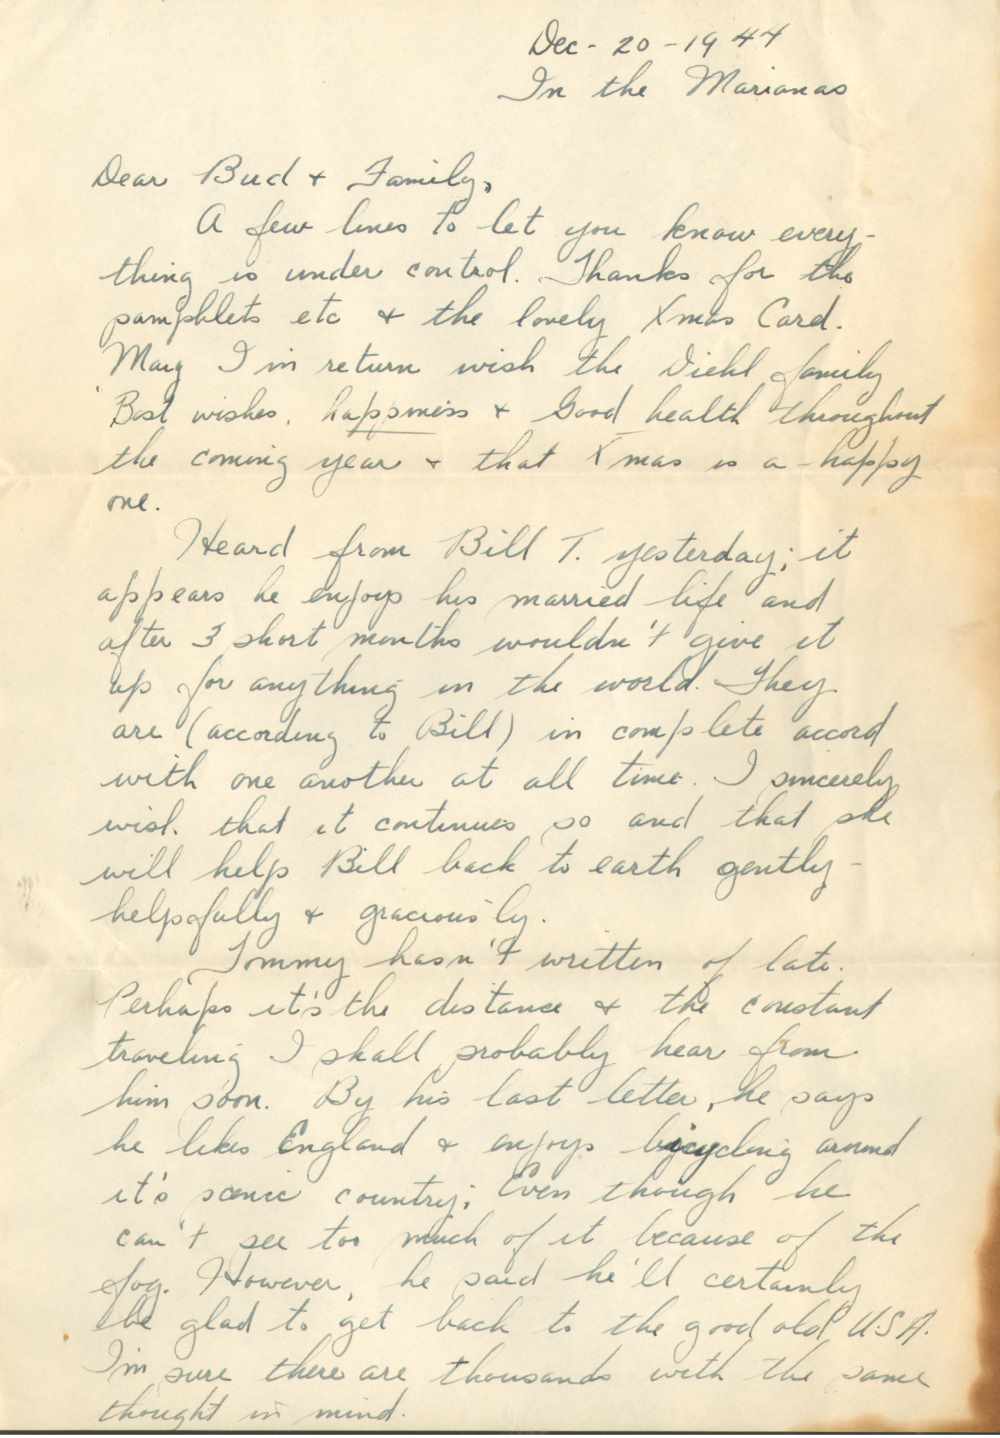 Dec - 20 - 1944
In the Marianas
Dear Bud + Family,
A few lines to let you know every-
thing is under control. Thanks for the
pamphlets etc + the lovely Xmas Card.
May I in return wish the Diehl family
Best wishes, happiness + Good health throughout
the coming year + that Xmas is a happy
one.
Heard from Bill T. yesterday; it
appears he enjoys his married life and
after 3 short months wouldn't give it
up for anything in the world. They
are (according to Bill) in complete accord
with one another at all time. I sincerely
wish that it continues so and that she
will help Bill back to earth gently -
helpfully + graciously.
Tommy hasn't written of late.
Perhaps it's the distance + the constant
traveling I shall probably hear from
him soon. By his last letter, he says
he likes England + enjoys bicycling around
it's scenic country; Even though he
can't see too much of it because of the
fog. However, he said he'll certainly
be glad to get back to the good old U.S.A.
I'm sure there are thousands with the same
thought in mind.